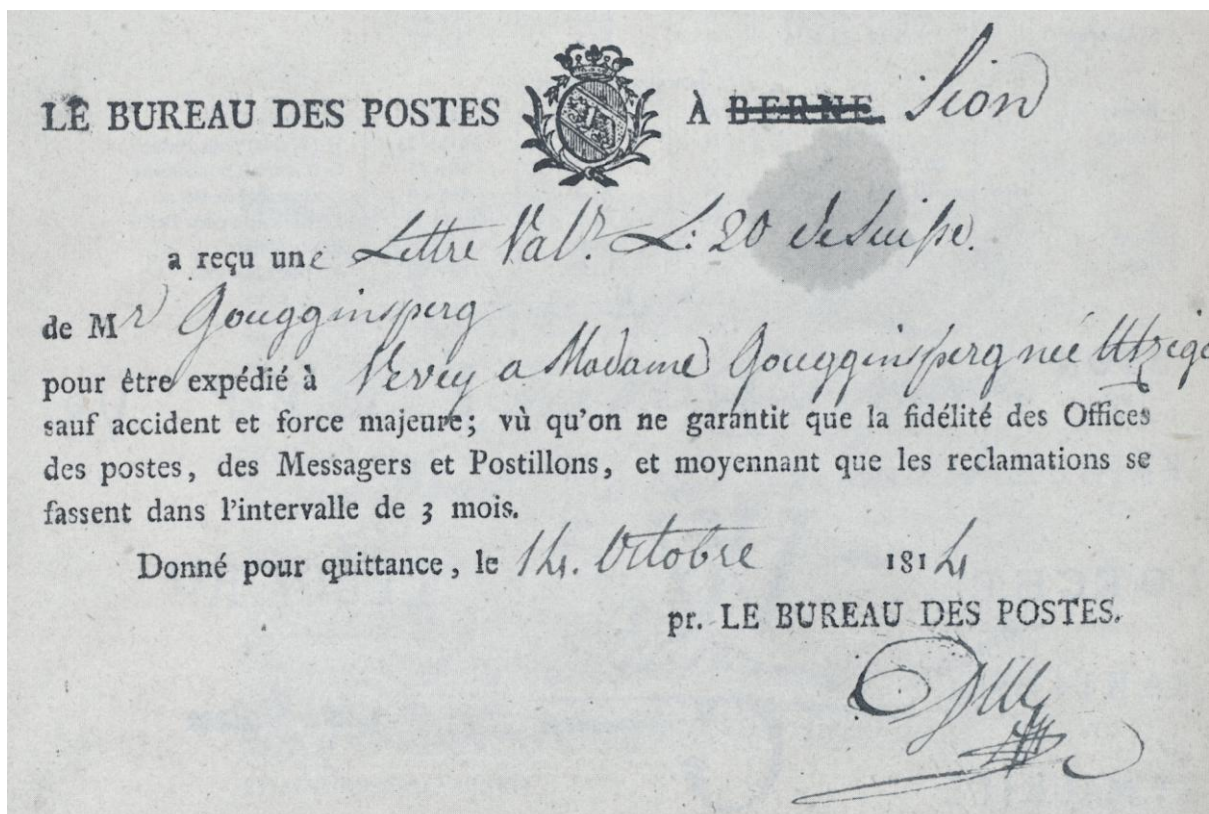 LE BUREAU DES POSTES À BERNE Sion
a reçu une Lettre Valr. L: 20 de Suisse.
de Mr Gougginsperg
pour être expédié à Vevey a Madame Gougginsperg née
sauf accident et force majeure; vù qu'on ne garantit que la fidélité des Offices
des postes, des Messagers et Postillons, et moyennant que les reclamations se
fassent dans l'intervalle de 3 mois.
Donné pour quittance, le 14. Octobre 1814
pr. LE BUREAU DES POSTES.